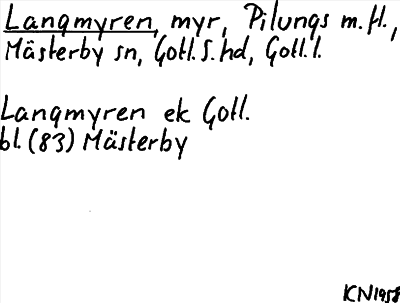 Langmyren, myr, Pilungs m.fl.,
Mästerby sn, Gotl.S.hd, Gotl.l.
Langmyren ek Gotl.
bl. (83) Mästerby
KN1958